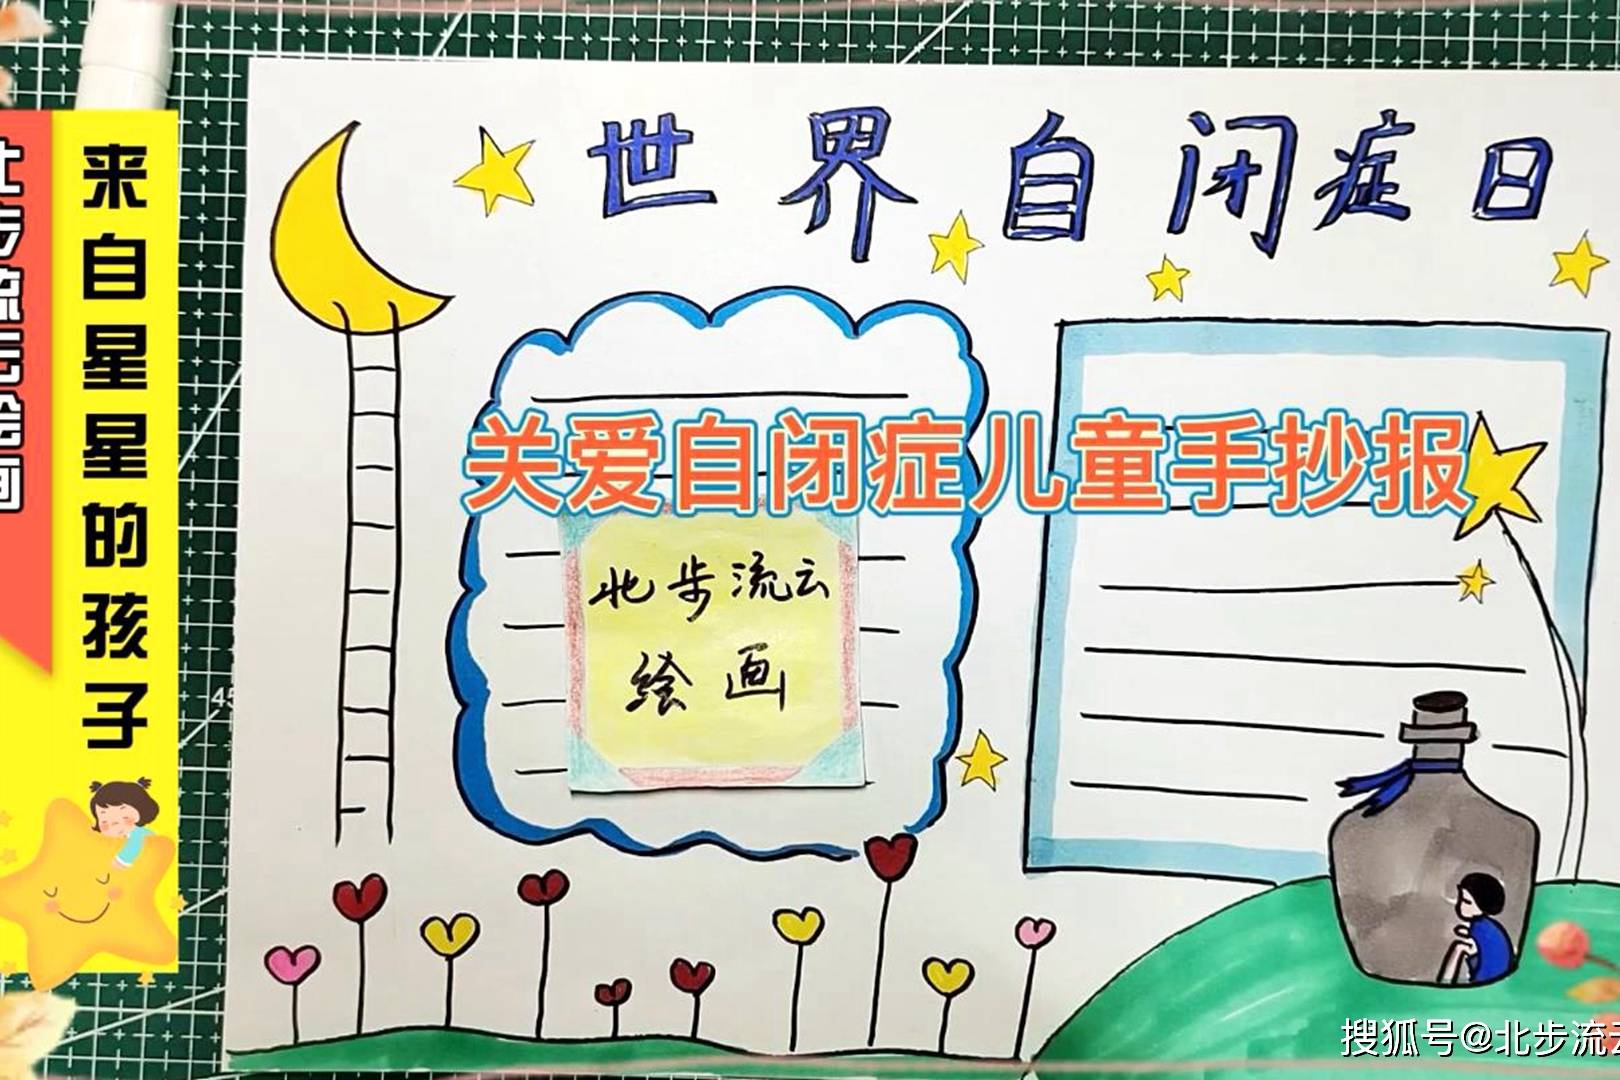 世界自闭症日
来自星星的孩子
北步流云绘画
关爱自闭症儿童手抄报
北步流云
绘画
45
搜狐号@北步流云